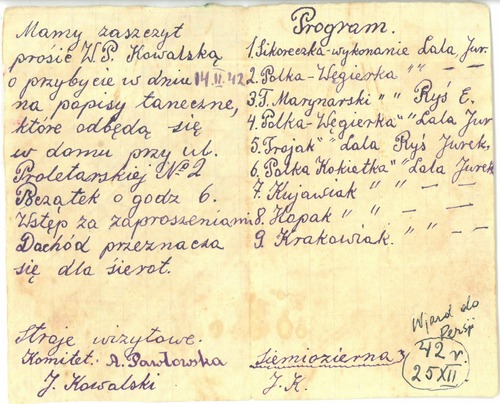 Mamy zaszczyt
prosić W.P. Kowalską
o przybycie w dniu 14.II.42
na popisy taneczne,
które odbędą się
w domu przy ul.
Proletarskiej № 2
Początek o godz 6.
Wstęp za zaproszeniami
Dochód przeznacza
się dla sierot.
Stroje wizytowe.
Komitet. A. Pawłowska
J. Kowalski
Program.
1. Sikoreczka-wykonanie Lala Jur.
2. Polka-Węgierka " " — —
3. T. Marynarski " " Ryś E.
4. Polka-Węgierka " " Lala Jur
5. Trojak " " Lala Ryś Jurek,
6. Polka Kokietka " " Lala Jurek
7. Kujawiak " " — —
8. Hopak " " — —
9. Krakowiak. " " — —
Siemiozierna
J. K.
Wjazd do
Persji
42 r.
25 XII.